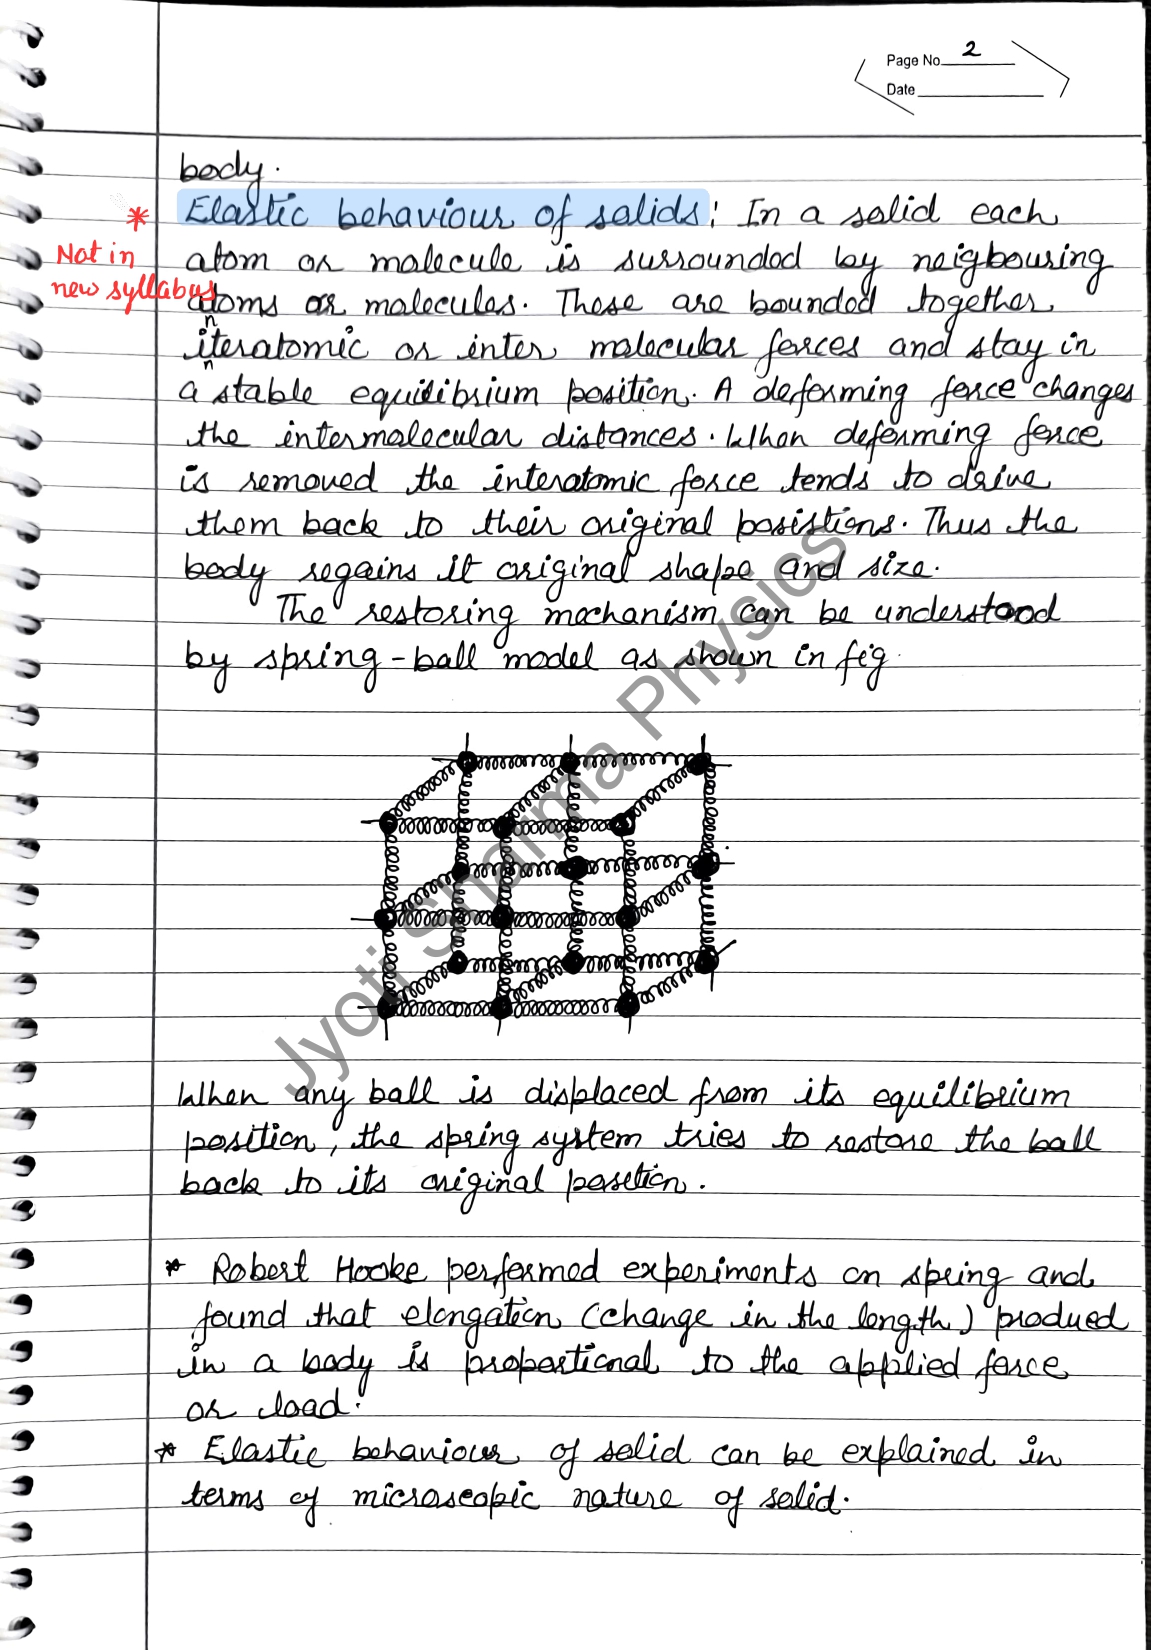 Page No. 2
Date
body.
* Elastic behaviour of solids: In a solid each
Not in
new syllabus
atom or malecule is surrounded by neigbouring
atoms or molecules. These are bounded together
interatomic or inter molecular forces and stay in
a stable equilibrium position. A deforming force changes
the intermolecular distances. When deforming force
is removed the interatomic force tends to drive
them back to their original posistions. Thus the
body regains it original shape and size.
The restoring mechanism can be understood
by spring-ball model as shown in fig.
Jyoti Sharma Physics
When any ball is displaced from its equilibrium
position, the spring system tries to restore the ball
back to its original position.
* Robert Hooke performed experiments on spring and
found that elongation (change in the length) produed
in a body is proportional to the applied force
or load.
* Elastic behaviour of solid can be explained in
terms of microscopic nature of solid.